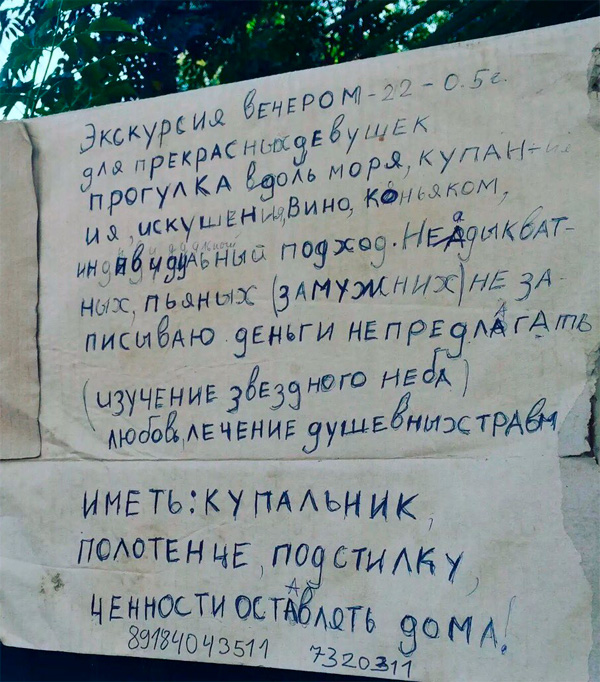 Экскурсия вечером - 22 - 0.5 г.
для прекрасных девушек
прогулка вдоль моря, купан-
ия, искушения, вино, коньяком,
индивидуальный подход. Неадыкват-
ных, пьяных (замужних) не за-
писываю деньги непредлагать
(изучение звездного неба)
любовь, лечение душевных травм
иметь: купальник,
полотенце, подстилку,
ценности оставлять дома!
89184043511 7320311